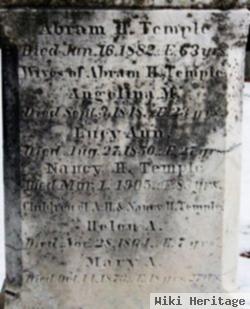 Abram H. Temple
Died Jan. 16. 1882. Æ 63 yrs.
Wives of Abram H. Temple
Angelina M.
Died Sept.
Lucy Ann
Died Aug. 27. 1850. Æ 27 yrs.
Nancy H. Temple
Died Mar. 1. 1905. Æ
Children of A.H. & Nancy H. Temple
Helen A.
Died Nov. 28. 1864. Æ 7 yrs.
Mary A.
Died Oct. 14. 1876. Æ 18 yrs.
Wiki Heritage